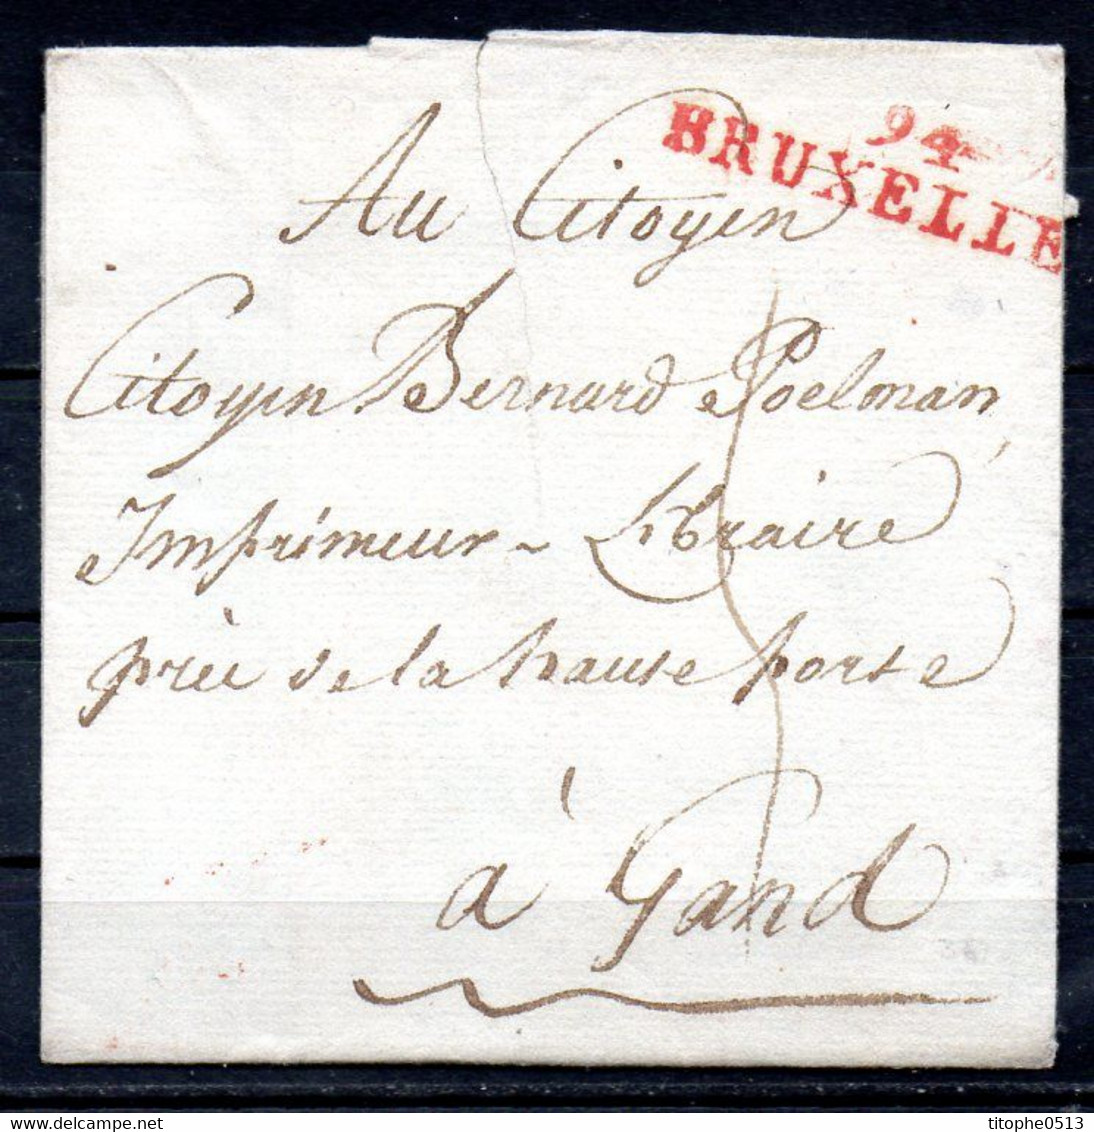 94
BRUXELLE
Au Citoyen
Citoyen Bernard Poelman,
Imprimeur - Libraire
près de la haute porte
à Gand
titophe0513